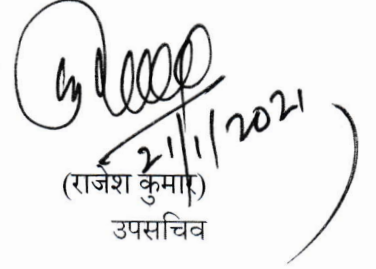 21/1/2021
(राजेश कुमार)
उपसचिव